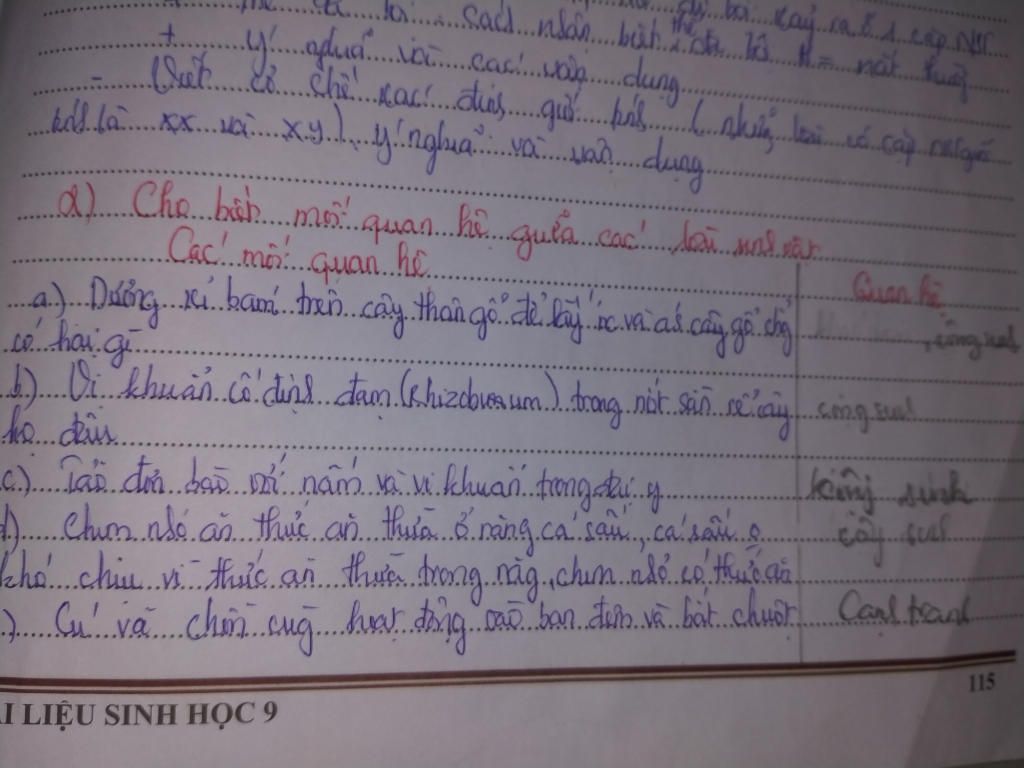 + Ý nghĩa và các vận dụng
- Viết cơ chế xác định giới tính ( những loài có cặp NST giới
tính là XX và XY ), ý nghĩa và vận dụng
2) Cho biết mối quan hệ giữa các loài sinh vật
Các mối quan hệ
Quan hệ
a) Dương xỉ bám trên cây thân gỗ để lấy nc và as cây gỗ chg
có hại gì
, cộng sinh
b) Vi khuẩn cố định đạm (Rhizobium) trong nốt sần rễ cây
họ đậu
cộng sinh
c) Tảo đơn bào với nấm và vi khuẩn trong địa y
sinh
d) Chim nhỏ ăn thức ăn thừa ở răng cá sấu, cá sấu o
khó chịu vì thức ăn thừa trong răng, chim nhỏ có thức ăn
) Cú và chồn cùg hoạt động vào ban đêm và bắt chuột
Cạnh tranh
115
I LIỆU SINH HỌC 9